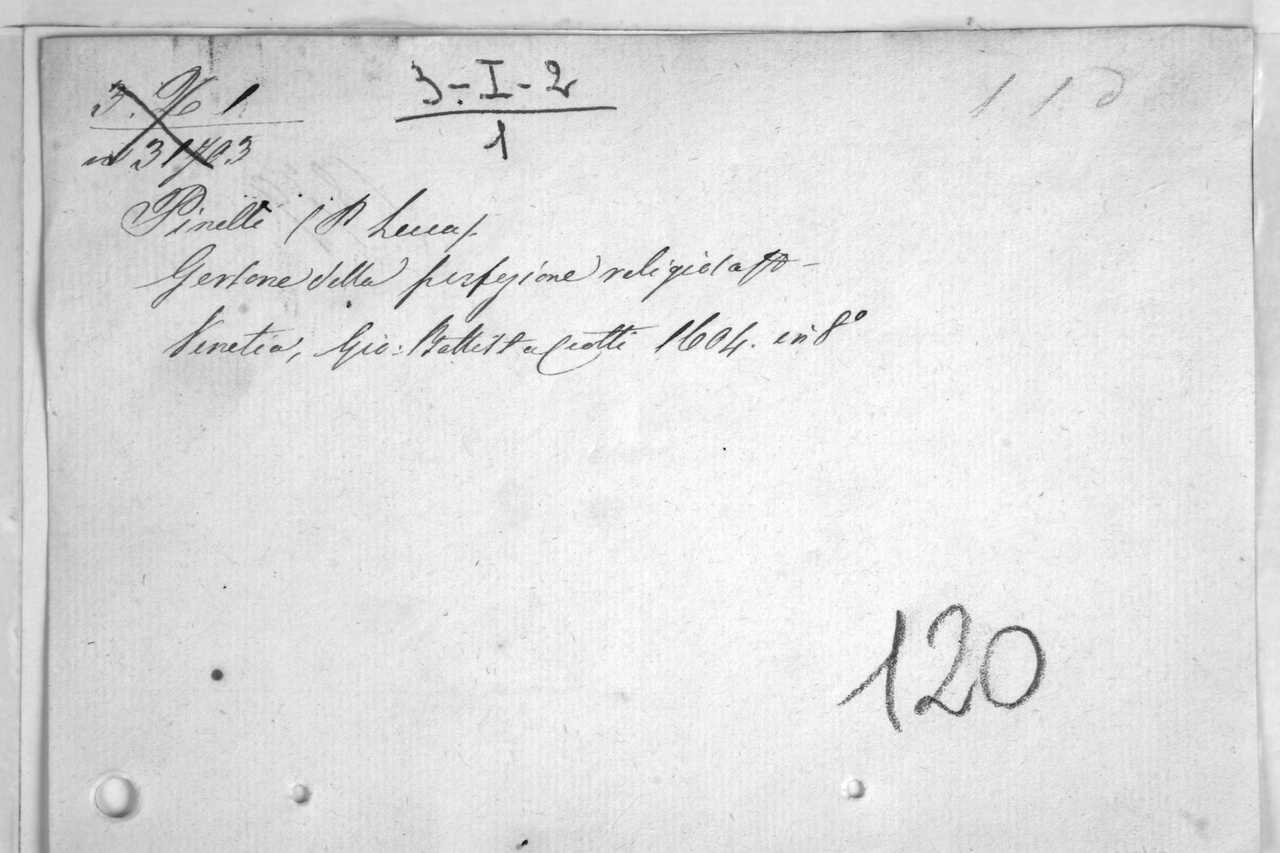 3-I-2
1
Pinelli (P Lucca)
Gersone della perfezione religiosa
Venetia, Gio: Battista Ciotti 1604. in 8º
120